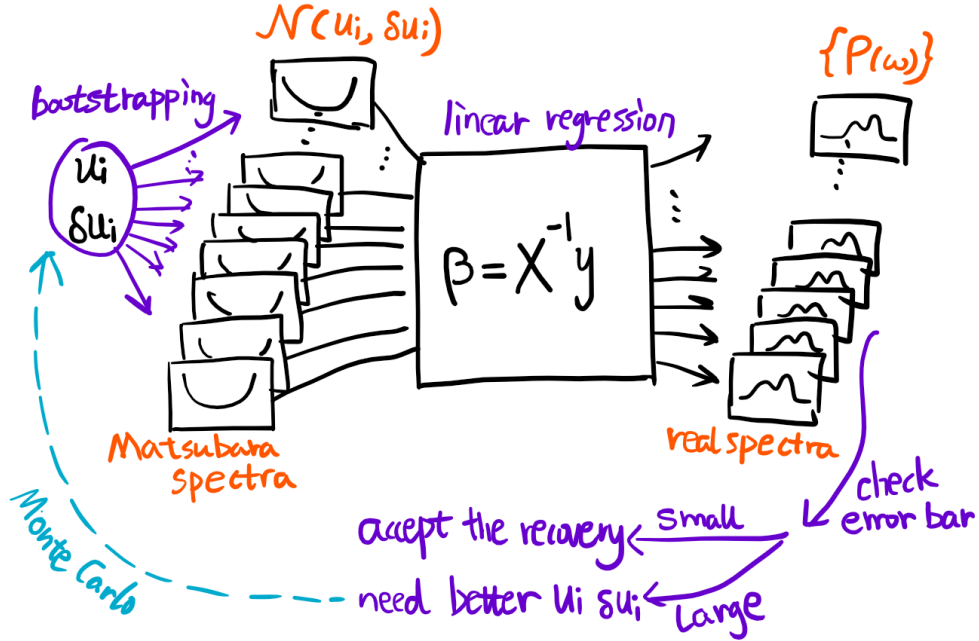 N(ui, δui)
{P(ω)}
bootstrapping
linear regression
ui
δui
β=X⁻¹y
Matsubara
spectra
real spectra
check
error bar
Small
accept the recovery
need better ui δui
Large
Monte Carlo